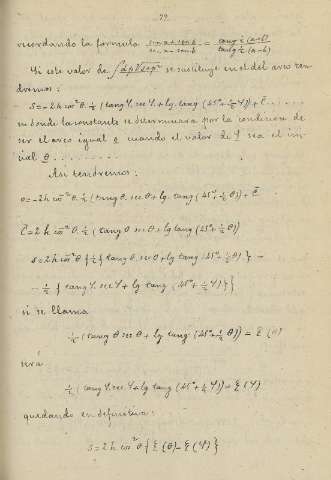 - 22 -
recordando la formula (sen a + sen b)/(sen a - sen b) = (tang ½ (a+b))/(tang ½ (a-b))
Si este valor de ∫dp√1+p² se sustituye en el del arco ten-
dremos:
s = -2h cos²θ. ½ (tang φ. sec φ + lg. tang (45°+½φ)) + C.......
en donde la constante se determinará por la condicion de
ser el arco igual o cuando el valor de φ sea el ini-
cial θ..........
Asi tendremos:
o = -2h cos²θ. ½ (tang θ. sec θ + lg. tang (45°+½θ)) + C
C = 2h cos²θ. ½ (tang θ sec θ + lg tang (45°+½θ))
s = 2h cos²θ {½{tang θ. sec θ + lg tang (45°+½θ)} -
- ½{tang φ. sec φ + lg tang (45°+½φ)}}
si se llama
½ (tang θ sec θ + lg tang (45°+½θ)) = ξ (θ)
será
½ (tang φ. sec φ + lg tang (45°+½φ)) = ξ (φ)
quedando en definitiva:
s = 2h cos²θ {ξ (θ) - ξ (φ)}